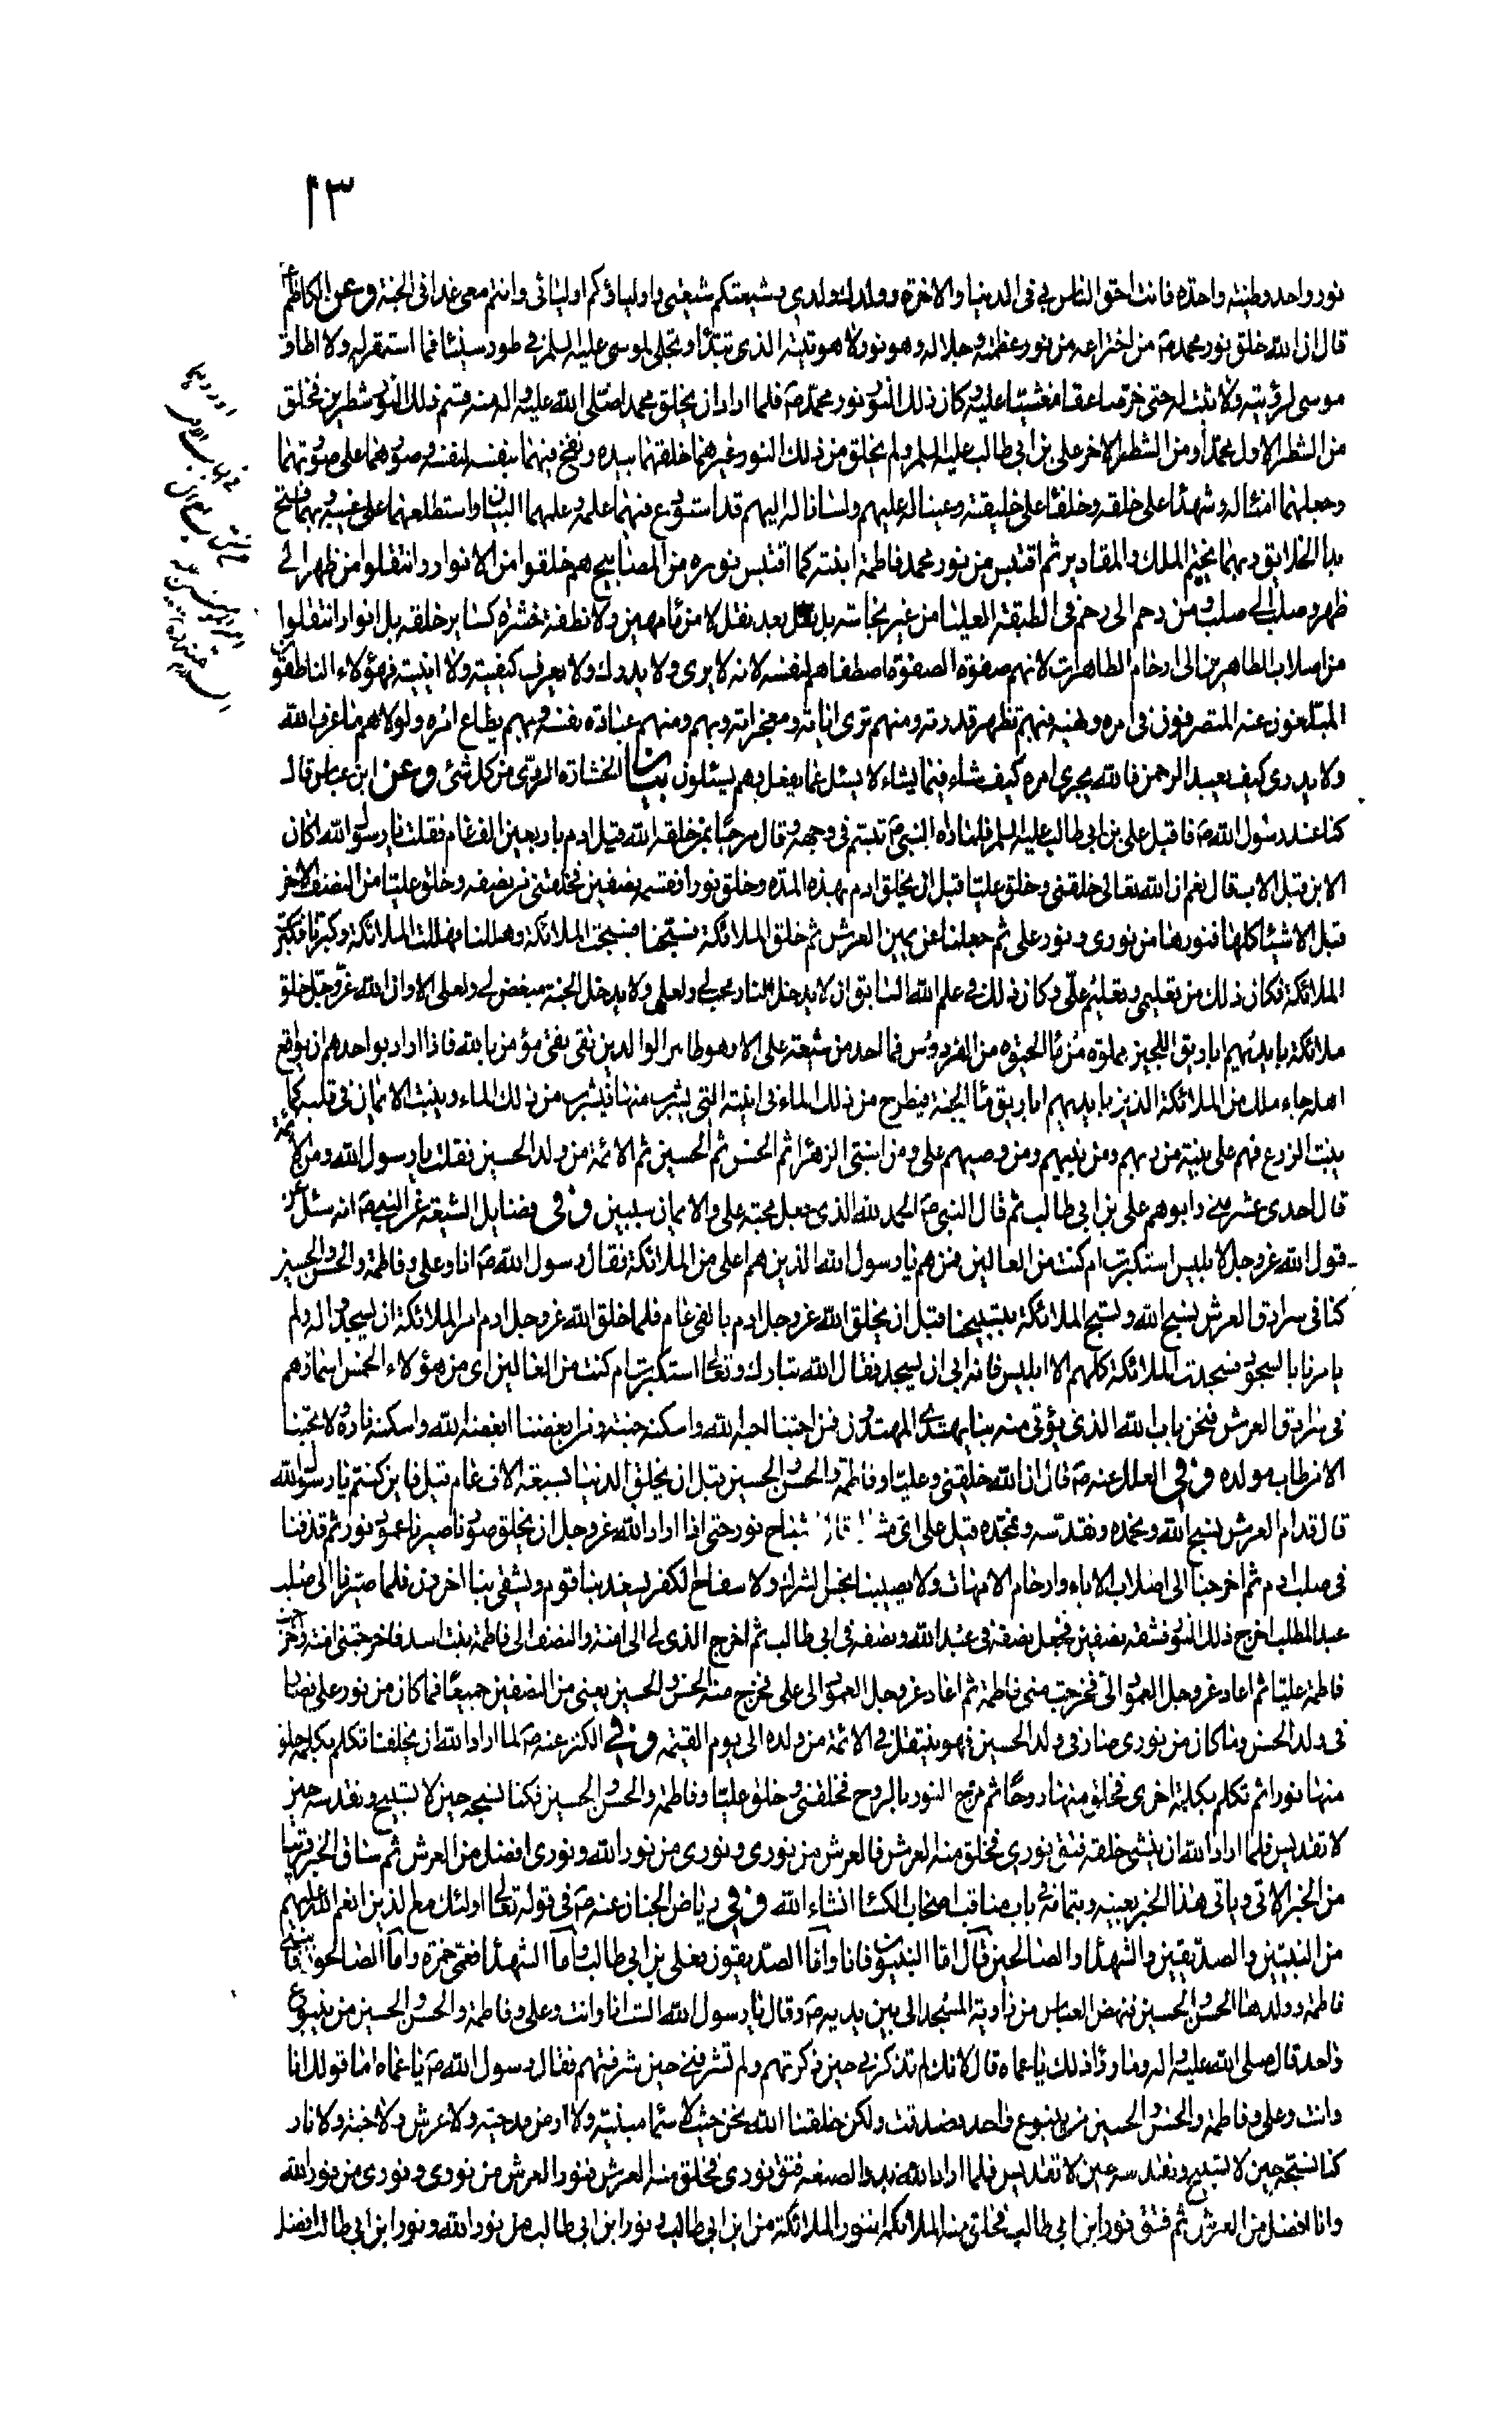 ١٣
نور واحد وطينة واحدة فانت احق الناس بي في الدنيا والاخرة وولدك ولدي وشيعتكم شيعتي واولياؤكم اوليائي وانتم معي غدا في الجنة وعن الكاظم ع
قال ان الله خلق نور محمد ص من اختراعه من نور عظمته وجلاله وهو نور لاهوتيته الذي تبدا وتجلى لموسى عليه السلم في طور سيناء فما استقر له ولا اطاق
موسى لرؤيته ولا ثبت له حتى خر صاعقا مغشيا عليه وكان ذلك النور نور محمد ص فلما اراد ان يخلق محمدا صلى الله عليه واله منه قسم ذلك النور شطرين فخلق
من الشطر الاول محمدا ومن الشطر الاخر علي بن ابي طالب عليه السلم ولم يخلق من ذلك النور غيرهما خلقهما بيده ونفخ فيهما بنفسه لنفسه وصورهما على صورتهما
وجعلهما امناء له وشهداء على خلقه وخلفاء على خليقته وعينا له عليهم ولسانا له اليهم قد استودع فيهما علمه وعلمهما البيان واستطلعهما على غيبه وبهما فتح
بدا الخلايق وبهما يختم الملك والمقادير ثم اقتبس من نور محمد فاطمة ابنته كما اقتبس نوره من المصابيح هم خلقوا من الانوار وانتقلوا من ظهر الى
ظهر وصلب الى صلب ومن رحم الى رحم في الطبقة العليا من غير نجاسة بل نقل بعد نقل لا من ماء مهين ولا نطفة خشرة كساير خلقه بل انوار انتقلوا
من اصلاب الطاهرين الى ارحام الطاهرات لانهم صفوة الصفوة اصطفاهم لنفسه لانه لا يرى ولا يدرك ولا يعرف كيفيته ولا اينيته فهؤلاء الناطقون
المبلغون عنه المتصرفون في امره ونهيه فبهم تظهر قدرته ومنهم ترى اياته ومعجزاته وبهم ومنهم عبادة نفسه وبهم يطاع امره ولولاهم ما عرف الله
ولا يدرى كيف يعبد الرحمن فالله يجري امره كيف شاء فيما يشاء لا يسئل عما يفعل وهم يسئلون بيان الخشارة الردي من كل شئ وعن ابن عباس قال
كنا عند رسول الله ص فاقبل علي بن ابي طالب عليه السلم فلما راه النبي ص تبسم في وجهه وقال مرحبا بمن خلقه الله قبل ادم باربعين الف عام فقلت يا رسول الله اكان
الابن قبل الاب قال نعم ان الله تعالى خلقني وخلق عليا قبل ان يخلق ادم بهذه المدة وخلق نورا فقسمه نصفين فخلقني من نصفه وخلق عليا من النصف الاخر
قبل الاشياء كلها فنورها من نوري ونور علي ثم جعلنا عن يمين العرش ثم خلق الملائكة فسبحنا فسبحت الملائكة وهللنا فهللت الملائكة وكبرنا فكبر
الملائكة فكان ذلك من تعليمي وتعليم علي وكان ذلك في علم الله السابق ان لا يدخل النار محب لي ولعلي ولا يدخل الجنة مبغض لي ولعلي الا وان الله عز وجل خلق
ملائكة بايديهم اباريق اللجين مملوة من ماء الحيوة من الفردوس فما احد من شيعة علي الا وهو طاهر الوالدين تقي نقي مؤمن بالله فاذا اراد بواحدهم ان يواقع
اهله جاء ملك من الملائكة الذين بايديهم اباريق ماء الجنة فيطرح من ذلك الماء في انيته التي يشرب منها فيشرب من ذلك الماء وينبت الايمان في قلبه كما
ينبت الزرع فهم على بينة من ربهم ومن نبيهم ومن وصيهم علي ومن ابنتي الزهرا ثم الحسن ثم الحسين ثم الائمة من ولد الحسين فقلت يا رسول الله ومن الائمة
قال احدى عشر مني وابوهم علي بن ابي طالب ثم قال النبي ص الحمد لله الذي جعل محبة علي والايمان سببين وفي فضايل الشيعة عن النبي ص انه سئل عن
قول الله عز وجل لابليس استكبرت ام كنت من العالين من هم يا رسول الله الذين هم اعلى من الملائكة فقال رسول الله ص انا وعلي وفاطمة والحسن والحسين
كنا في سرادق العرش نسبح الله وتسبح الملائكة بتسبيحنا قبل ان يخلق الله عز وجل ادم بالفي عام فلما خلق الله عز وجل ادم امر الملائكة ان يسجدوا له ولم
يامرنا بالسجود فسجدت الملائكة كلهم الا ابليس فانه ابى ان يسجد فقال الله تبارك وتعالى استكبرت ام كنت من العالين اى من هؤلاء الخمس اسماؤهم
في سرادق العرش فنحن باب الله الذي يؤتى منه بنا يهتدي المهتدون فمن احبنا احبه الله واسكنه جنته ومن ابغضنا ابغضه الله واسكنه ناره ولا يحبنا
الا من طاب مولده وفي العلل عنه ص قال ان الله خلقني وعليا وفاطمة والحسن والحسين قبل ان يخلق الدنيا بسبعة الاف عام قيل فاين كنتم يا رسول الله
قال قدام العرش نسبح الله ونحمده ونقدسه ونمجده قيل على اي مثال قال اشباح نور حتى اذا اراد الله عز وجل ان يخلق صورنا صيرنا عمود نور ثم قذفنا
في صلب ادم ثم اخرجنا الى اصلاب الاباء وارحام الامهات ولا يصيبنا نجس الشرك ولا سفاح الكفر يسعد بنا قوم ويشقى بنا اخرون فلما صيرنا الى صلب
عبد المطلب اخرج ذلك النور فشقه نصفين فجعل نصفه في عبد الله ونصفه في ابي طالب ثم اخرج الذي لي الى امنة والنصف الى فاطمة بنت اسد فاخرجتني امنة واخرجت
فاطمة عليا ثم اعاد عز وجل العمود الي فخرجت مني فاطمة ثم اعاد عز وجل العمود الى علي فخرج منه الحسن والحسين يعني من النصفين جميعا فما كان من نور علي فصار
في ولد الحسن وما كان من نوري صار في ولد الحسين فهو ينتقل في الائمة من ولده الى يوم القيمة وفي الكنز عنه ص لما اراد الله ان يخلقنا تكلم بكلمة خلق
منها نورا ثم تكلم بكلمة اخرى فخلق منها روحا ثم مزج النور بالروح فخلقني وخلق عليا وفاطمة والحسن والحسين فكنا نسبحه حين لا تسبيح ونقدسه حين
لا تقديس فلما اراد الله ان ينشئ خلقه فتق نوري فخلق منه العرش فالعرش من نوري ونوري من نور الله ونوري افضل من العرش ثم ساق الخبر قريبا
من الخبر الاتي وياتي هذا الخبر بعينه وبتمامه في باب مناقب اصحاب الكساء انشاء الله وفي رياض الجنان عنه ص في قوله تعالى اولئك مع الذين انعم الله عليهم
من النبيين والصديقين والشهداء والصالحين قال اما النبيون فانا واما الصديقون فعلي بن ابي طالب واما الشهداء فعمي حمزة واما الصالحون فابنتي
فاطمة وولدها الحسن والحسين فنهض العباس من زاوية المسجد الى بين يديه ص وقال يا رسول الله الست انا وانت وعلي وفاطمة والحسن والحسين من ينبوع
واحد قال صلى الله عليه واله وما وراء ذلك يا عماه قال لانك لم تذكرني حين ذكرتهم ولم تشرفني حين شرفتهم فقال رسول الله ص يا عماه اما قولك انا
وانت وعلي وفاطمة والحسن والحسين من ينبوع واحد فصدقت ولكن خلقنا الله نحن حيث لا سماء مبنية ولا ارض مدحية ولا عرش ولا جنة ولا نار
كنا نسبحه حين لا تسبيح ونقدسه حين لا تقديس فلما اراد الله بدو الصنعة فتق نوري فخلق منه العرش فنور العرش من نوري ونوري من نور الله
وانا افضل من العرش ثم فتق نور ابن ابي طالب فخلق منه الملائكة فنور الملائكة من ابن ابي طالب ونور ابن ابي طالب من نور الله ونور ابن ابي طالب افضل